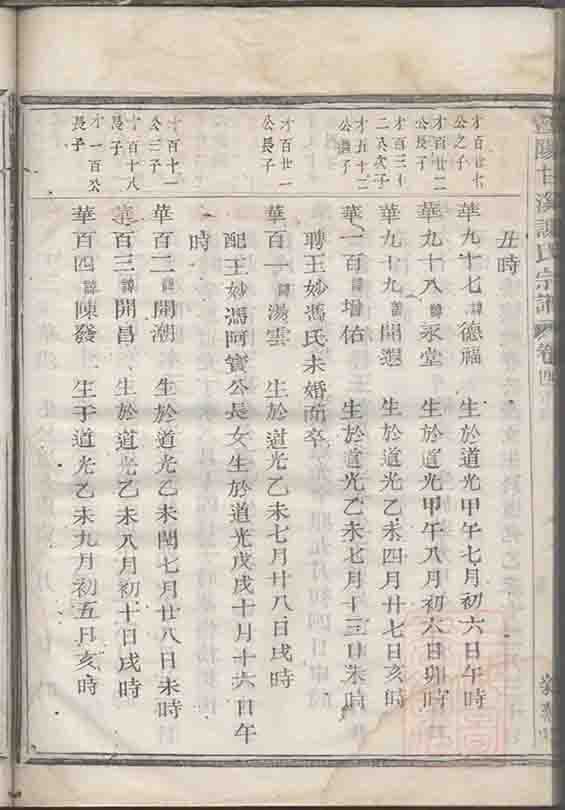 甘溪
氏宗譜
卷四
丑時
才百廿七
公之子
華九十七諱德福 生於道光甲午七月初六日午時
才百廿二
公長子
華九十八諱永堂 生於道光甲午八月初六日卯時
才百三十
二公次子
華九十九諱開 生於道光乙未四月廿七日亥時
才五十二
公 子
華一百諱增佑 生於道光乙未七月十三日未時
聘王妙馮氏未婚而卒
才百廿一
公長子
華百一諱湯雲 生於道光乙未七月廿八日戌時
配王妙馮阿寶公長女生於道光戊戌十月十六日午
時
才百十一
公三子
華百二諱開潮 生於道光乙未閏七月廿八日未時
才百十八
長子
華百三諱開昌 生於道光乙未八月初十日戌時
才一百公
長子
華百四諱陳發 生于道光乙未九月初五日亥時